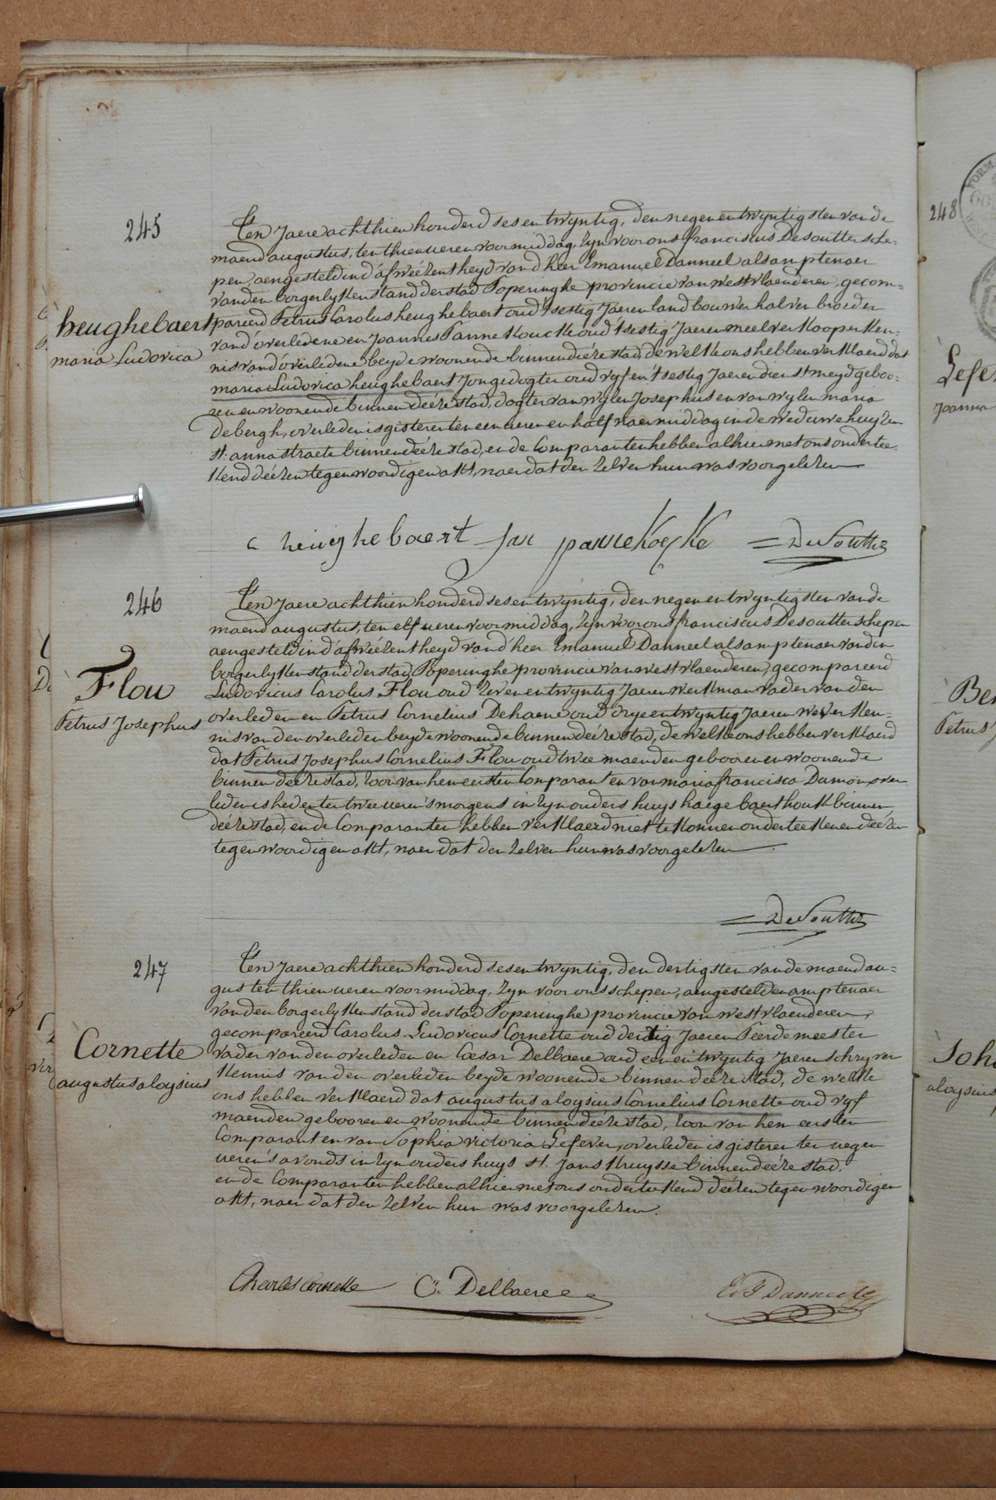 245
heughebaert
maria Ludovica
Ten Jaere achthien honderd ses en twyntig, den negen en twyntigsten van de
maend augustus, ten thien ueren voormiddag, zyn voor ons franciscus Desoutter sche-
pen, aengesteld in d'afwéezentheyd van d'heer Emanuel Danneel als amptenaer
van den borgerlyken stand der stad Poperinghe provincie van westvlaenderen, gecom-
pareerd Petrus Carolus heughebaert oud t'sestig Jaeren landbouwer halven broeder
van d'overledene en Joannes Pannekoucke oud t'sestig Jaeren meelverkooper ken-
nis van d'overledene beyde woonende binnen deéze stad, de welke ons hebben verklaerd dat
maria Ludovica heughebaert Jongedogter oud vyf en t'sestig Jaeren dienstmeyd geboo-
ren en woonende binnen deéze stad, dogter van wylen Josephus en van wylen maria
Debergh, overleden is gisteren ten een ueren en half naermiddag in de weduwe huyzen
st. annastraete binnen deéze stad, en de Comparanten hebben alhier met ons ondertee-
kend deézen tegenwoordigen akt, naer dat den zelven hun was voorgelezen
c heughebaert Jan pannekoeke DeSoutter
246
Flou
Petrus Josephus
Ten Jaere achthien honderd ses en twyntig, den negen en twyntigsten van de
maend augustus, ten elf ueren voormiddag, zyn voor ons franciscus Desoutter schepen
aengesteld in d'afwéezentheyd van d'heer Emanuel Danneel als amptenaer van den
borgerlyken stand der stad Poperinghe provincie van westvlaenderen, gecompareerd
Ludovicus Carolus Flou oud zeven en twyntig Jaeren werkman vader van den
overleden en Petrus Cornelius Dehaene oud drye en twyntig Jaeren wever ken-
nis van den overleden beyde woonende binnen deéze stad, de welke ons hebben verklaerd
dat Petrus Josephus Cornelius Flou oud twee maenden gebooren en woonende
binnen deéze stad, zoon van hem eersten Comparant en van maria francisca Dumon, over-
leden is heden ten twee ueren s'morgens in zyn ouders huys haegebaerthoek binnen
deéze stad, en de Comparanten hebben verklaerd niet te konnen onderteekenen deézen
tegenwoordigen akt, naer dat den zelven hun was voorgelezen
DeSoutter
247
Cornette
augustus aloysius
Ten Jaere achthien honderd ses en twyntig, den dertigsten van de maend au-
gus ten thien ueren voormiddag, zyn voor ons schepen, aengestelden amptenaer
van den borgerlyken stand der stad Poperinghe provincie van westvlaenderen,
gecompareerd Carolus Ludovicus Cornette oud dertig Jaeren Peerdemeester
vader van den overleden en Caesar Delbaere oud een en twyntig Jaeren schryver
kennis van den overleden beyde woonende binnen deéze stad, de welke
ons hebben verklaerd dat augustus aloysius Cornelius Cornette oud vyf
maenden gebooren en woonende binnen deéze stad, zoon van hem eersten
Comparant en van Sophia victoria Lefever, overleden is gisteren ten negen
ueren s'avonds in zyn ouders huys st. Jans kruysse binnen deéze stad,
en de Comparanten hebben alhier met ons onderteekend deézen tegenwoordigen
akt, naer dat den zelven hun was voorgelezen.
Charles cornette C. Delbaere E. J. Danneel
248
Lefe
Joanna
Ben
Petrus J
aloysius